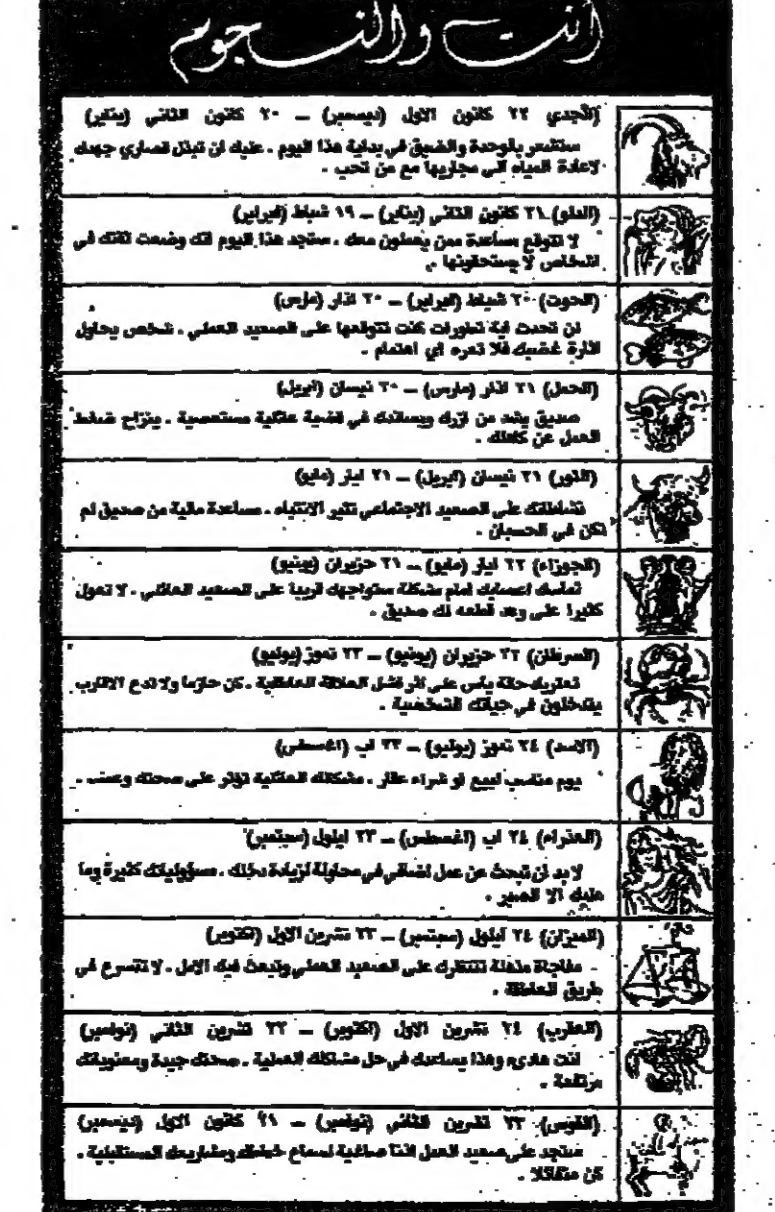 أنت والنجوم
(الجدي ٢٢ كانون الاول (ديسمبر) — ٢٠ كانون الثاني (يناير)
ستشعر بالوحدة والضيق في بداية هذا اليوم . عليك ان تبذل قصارى جهدك
لاعادة المياه الى مجاريها مع من تحب .
(الدلو) ٢١ كانون الثاني (يناير) — ١٩ شباط (فبراير)
لا تتوقع مساعدة ممن يعملون معك . ستجد هذا اليوم انك وضعت ثقتك في
اشخاص لا يستحقونها .
(الحوت) ٢٠ شباط (فبراير) — ٢٠ اذار (مارس)
لن تحدث اية تطورات كنت تتوقعها على الصعيد العملي . شخص يحاول
اثارة غضبك فلا تعره اي اهتمام .
(الحمل) ٢١ اذار (مارس) — ٢٠ نيسان (ابريل)
صديق يشد من ازرك ويساندك في قضية عائلية مستعصية . ينزاح ضغط
العمل عن كاهلك .
(الثور) ٢١ نيسان (ابريل) — ٢١ ايار (مايو)
نشاطاتك على الصعيد الاجتماعي تثير الانتباه . مساعدة مالية من صديق لم
تكن في الحسبان .
(الجوزاء) ٢٢ ايار (مايو) — ٢١ حزيران (يونيو)
تماسك اعصابك امام مشكلة ستواجهك قريبا على الصعيد العائلي . لا تعول
كثيرا على وعد قطعه لك صديق .
(السرطان) ٢٢ حزيران (يونيو) — ٢٣ تموز (يوليو)
تعتريك حالة يأس على اثر فشل العلاقة العاطفية . كن حازما ولا تدع الاقارب
يتدخلون في حياتك الشخصية .
(الاسد) ٢٤ تموز (يوليو) — ٢٣ اب (اغسطس)
يوم مناسب لبيع او شراء عقار . مشكلتك العائلية تؤثر على صحتك
(العذراء) ٢٤ اب (اغسطس) — ٢٣ ايلول (سبتمبر)
لا بد ان تبحث عن عمل اضافي في محاولة لزيادة دخلك . مسؤولياتك كثيرة وما
عليك الا الصبر .
(الميزان) ٢٤ ايلول (سبتمبر) — ٢٣ تشرين الاول (اكتوبر)
مفاجأة مذهلة تنتظرك على الصعيد العملي وتبعث فيك الامل . لا تتسرع في
طريق العاطفة .
(العقرب) ٢٤ تشرين الاول (اكتوبر) — ٢٢ تشرين الثاني (نوفمبر)
انت هادىء وهذا يساعدك في حل مشاكلك العملية . صحتك جيدة ومعنوياتك
مرتفعة .
(القوس) ٢٣ تشرين الثاني (نوفمبر) — ٢١ كانون الاول (ديسمبر)
ستجد على صعيد العمل اذنا صاغية لسماع خططك ومشاريعك المستقبلية .
كن متفائلا .